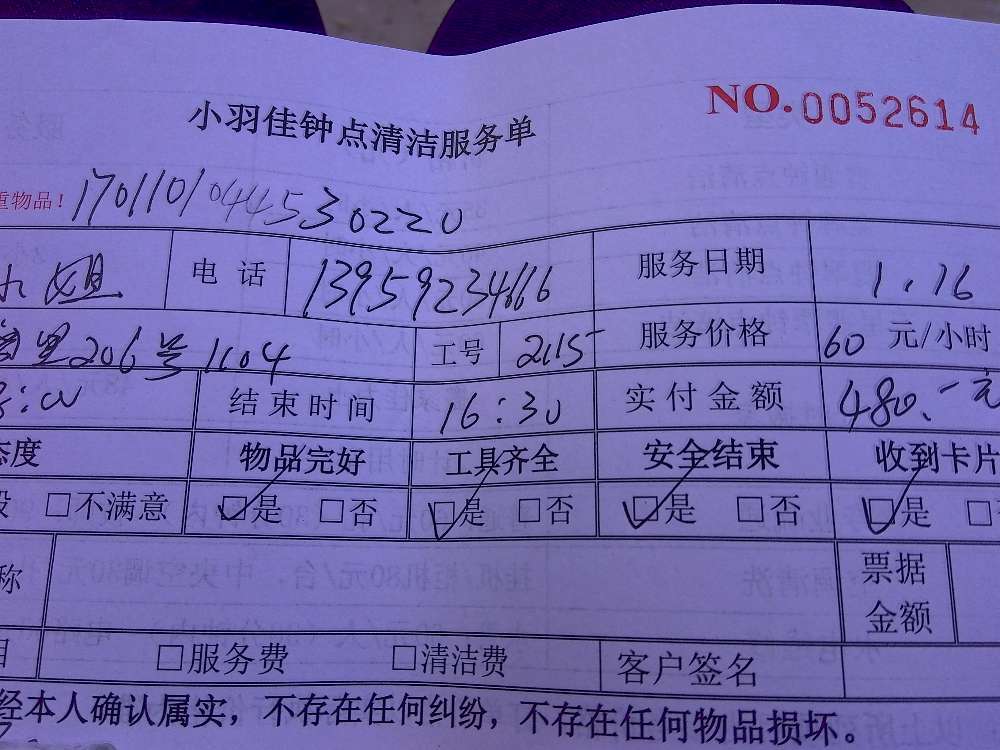 NO.0052614
小羽佳钟点清洁服务单
重物品! 1701101044530220
小姐 电话 13959234666 服务日期 1.16
里206号1104 工号 2115 服务价格 60元/小时
结束时间 16:30 实付金额 480.-元
态度 物品完好 工具齐全 安全结束 收到卡片
□不满意 □是 □否 □是 □否 □是 □否 □是
称 票据金额
□服务费 □清洁费 客户签名
经本人确认属实，不存在任何纠纷，不存在任何物品损坏。